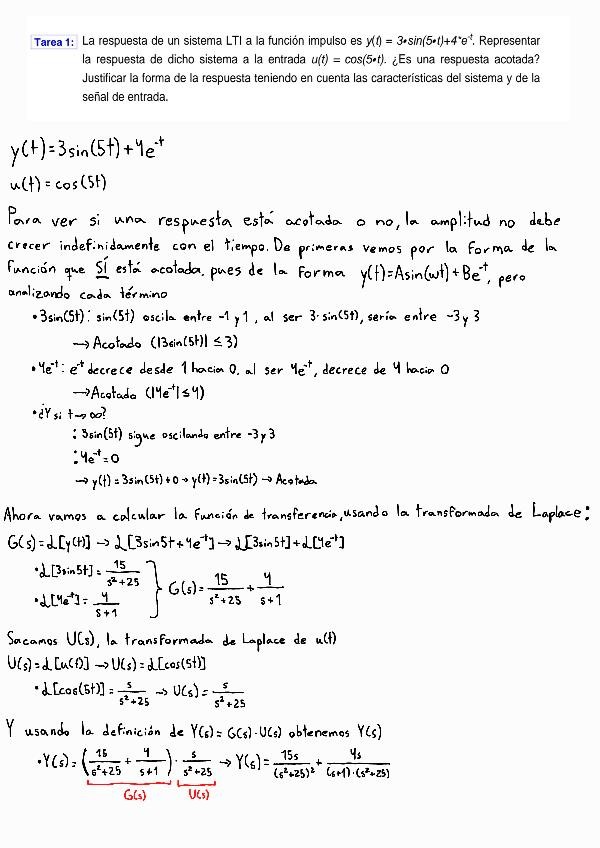 Tarea 1: La respuesta de un sistema LTI a la función impulso es y(t) = 3•sin(5•t)+4*e⁻ᵗ. Representar
la respuesta de dicho sistema a la entrada u(t) = cos(5•t). ¿Es una respuesta acotada?
Justificar la forma de la respuesta teniendo en cuenta las características del sistema y de la
señal de entrada.
y(t)=3sin(5t)+4e⁻ᵗ
u(t)=cos(5t)
Para ver si una respuesta está acotada o no, la amplitud no debe
crecer indefinidamente con el tiempo. De primeras vemos por la forma de la
función que SÍ está acotada, pues de la forma y(t)=Asin(wt)+Be⁻ᵗ, pero
analizando cada término
•3sin(5t): sin(5t) oscila entre -1 y 1, al ser 3·sin(5t), sería entre -3 y 3
→ Acotado (|3sin(5t)| ≤ 3)
•4e⁻ᵗ: e⁻ᵗ decrece desde 1 hacia 0, al ser 4e⁻ᵗ, decrece de 4 hacia 0
→Acotado (|4e⁻ᵗ| ≤ 4)
•¿Y si t→∞?
: 3sin(5t) sigue oscilando entre -3 y 3
: 4e⁻ᵗ=0
→ y(t)=3sin(5t)+0 → y(t)=3sin(5t) → Acotada
Ahora vamos a calcular la función de transferencia, usando la transformada de Laplace:
G(s)=ℒ[y(t)] → ℒ[3sin5t+4e⁻ᵗ] → ℒ[3sin5t]+ℒ[4e⁻ᵗ]
•ℒ[3sin5t]= 15/(s²+25)
•ℒ[4e⁻ᵗ]= 4/(s+1) } G(s)= 15/(s²+25) + 4/(s+1)
Sacamos U(s), la transformada de Laplace de u(t)
U(s)=ℒ[u(t)] → U(s)=ℒ[cos(5t)]
•ℒ[cos(5t)]= s/(s²+25) → U(s)= s/(s²+25)
Y usando la definición de Y(s)=G(s)·U(s) obtenemos Y(s)
•Y(s)=(15/(s²+25) + 4/(s+1)) · s/(s²+25) → Y(s)= 15s/(s²+25)² + 4s/((s+1)·(s²+25))
G(s) U(s)